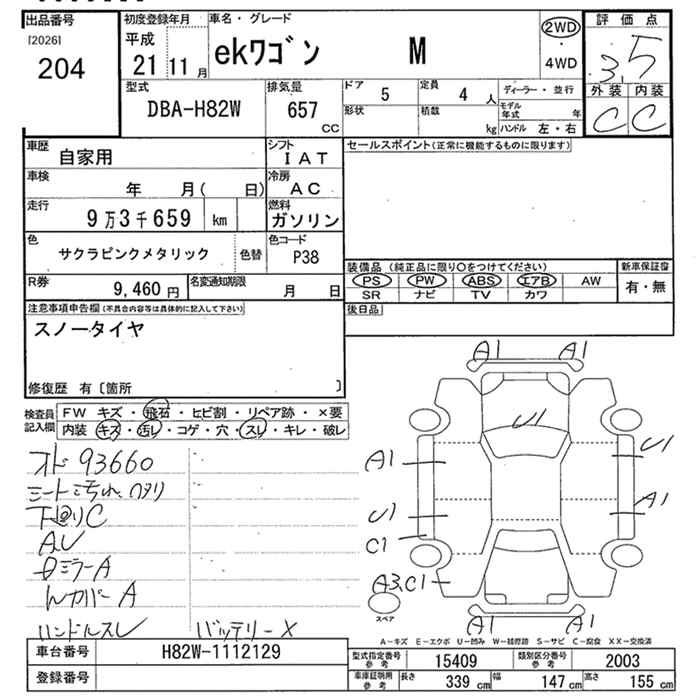 出品番号
[2026]
204
初度登録年月
平成
21 11 月
車名・グレード
ekワゴン M
2WD
・
4WD
評価点
3.5
外装 内装
C C
型式
DBA-H82W
排気量
657
CC
ドア 5
定員 4 人
形状
積載 kg
ディーラー・並行
モデル年式 年
ハンドル 左・右
車歴 自家用
シフト IAT
車検 年 月( 日)
冷房 AC
走行 9万3千659 km
燃料 ガソリン
色 サクラピンクメタリック 色替
色コード P38
R券 9,460 円
名変通知期限 月 日
セールスポイント(正常に機能するものに限ります)
装備品 (純正品に限り○をつけてください)
PS PW ABS エアB AW
SR ナビ TV カワ
新車保証書
有・無
後日品
注意事項申告欄(不具合内容等は具体的に記入して下さい)
スノータイヤ
修復歴 有〔箇所 〕
検査員記入欄
FW キズ・飛石・ヒビ割・リペア跡・×要
内装 キズ・汚レ・コゲ・穴・スレ・キレ・破レ
オド 93660
シート汚れ、ヘタリ
下回りC
AU
ミラーA
カバーA
ハンドルスレ バッテリーX
A1 A1
U1
A1 U1
U1 A1
C1
A3,C1
スペア
A1 A1
A−キズ E−エクボ U−凹み W−補修跡 S−サビ C−腐食 XX−交換済
車台番号 H82W-1112129
登録番号
型式指定番号 参考 15409
類別区分番号 参考 2003
車庫証明用 参考 長さ 339 cm 幅 147 cm 高さ 155 cm